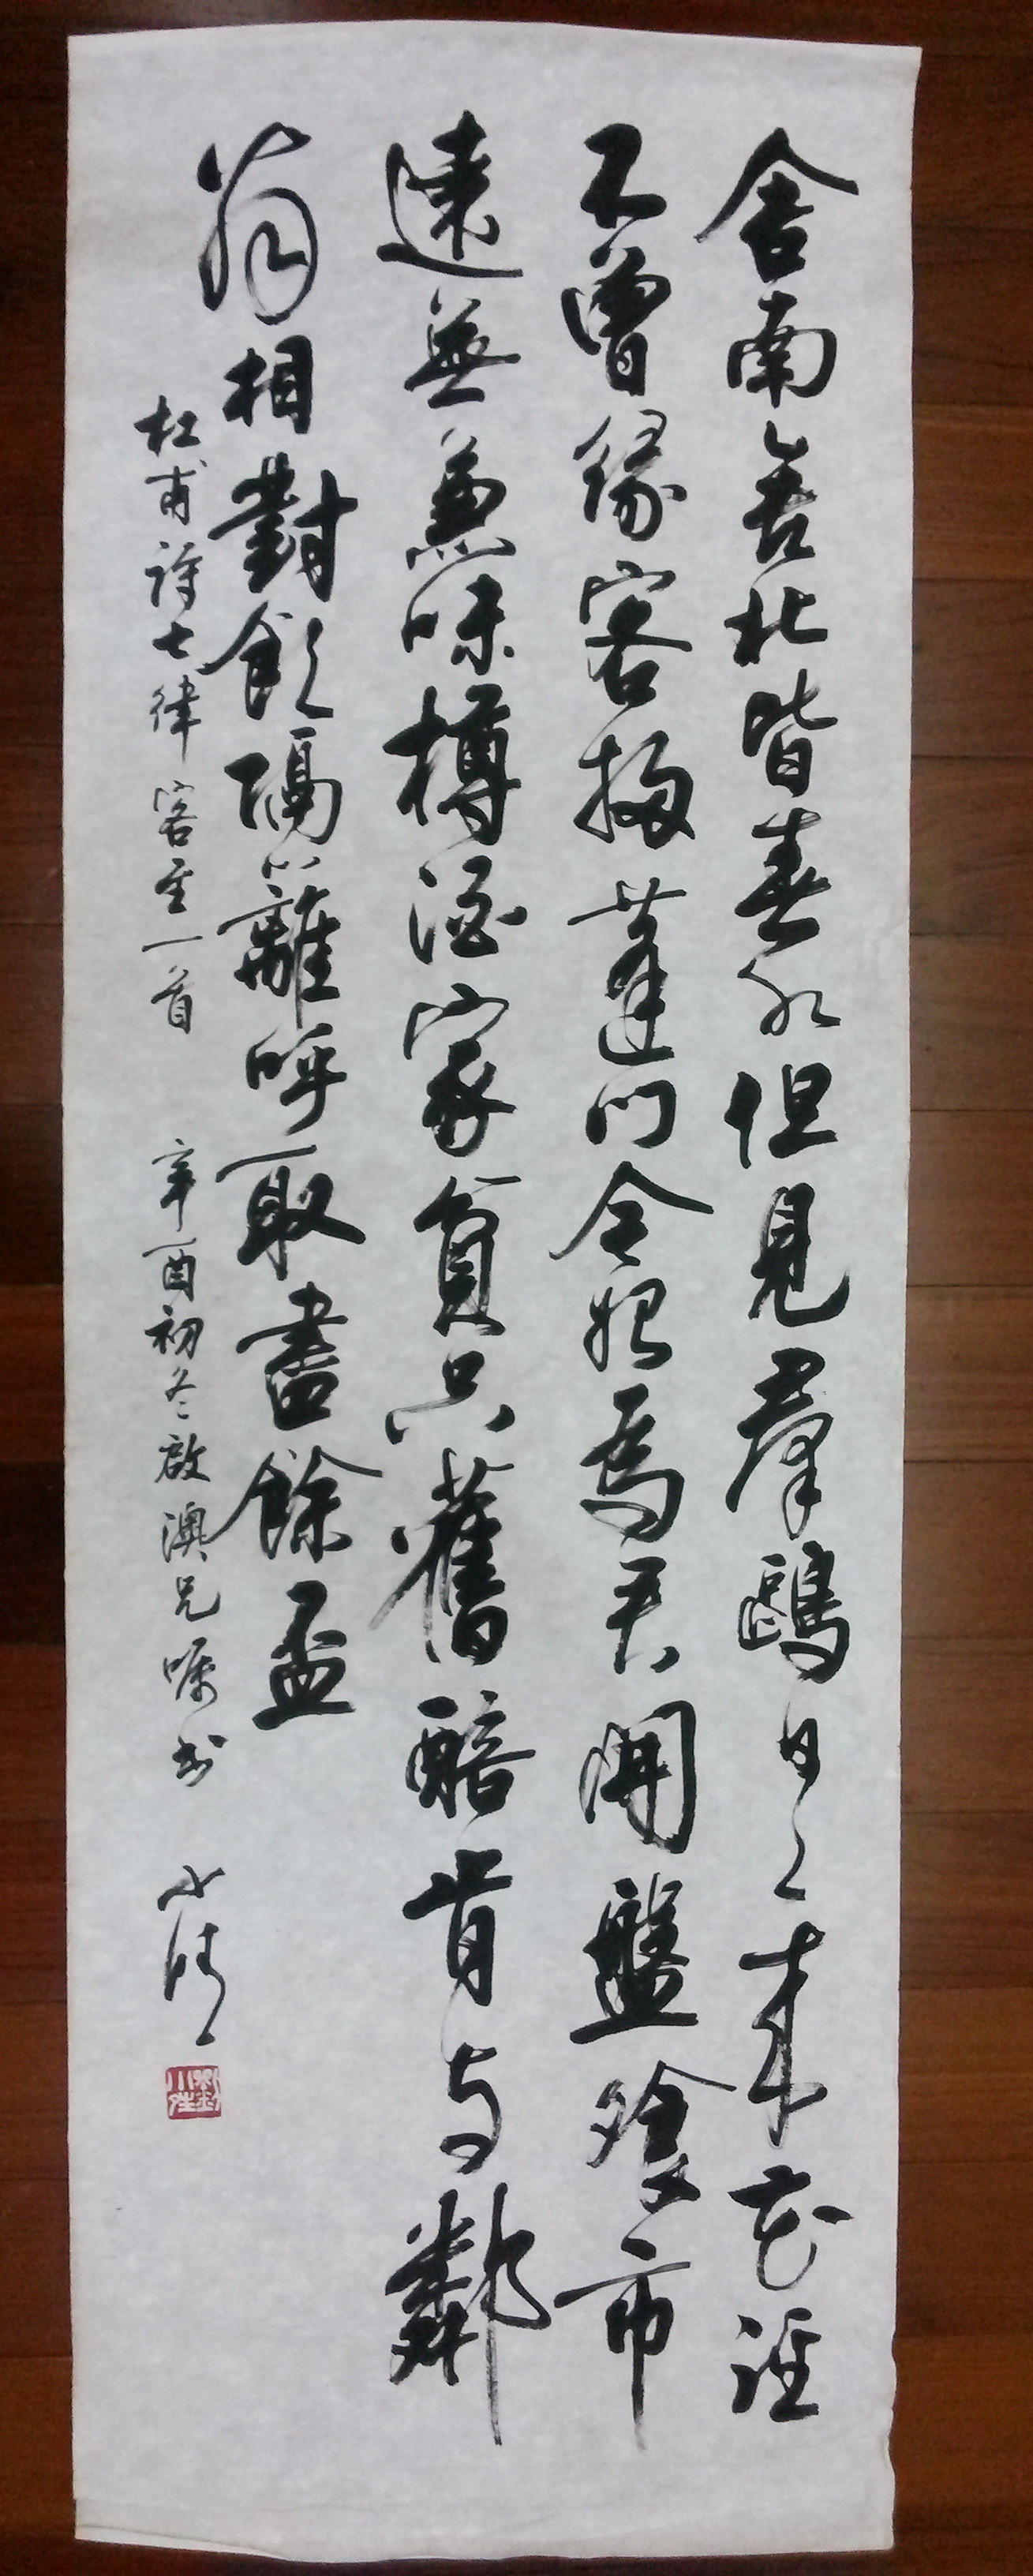 舍南舍北皆春水但見群鷗日々來花徑
不曾緣客掃蓬門今始為君開盤飧市
遠無兼味樽酒家貧只舊醅肯與鄰
翁相對飲隔籬呼取盡餘盃
杜甫詩七律客至一首 辛酉初冬啟澳兄嘱书